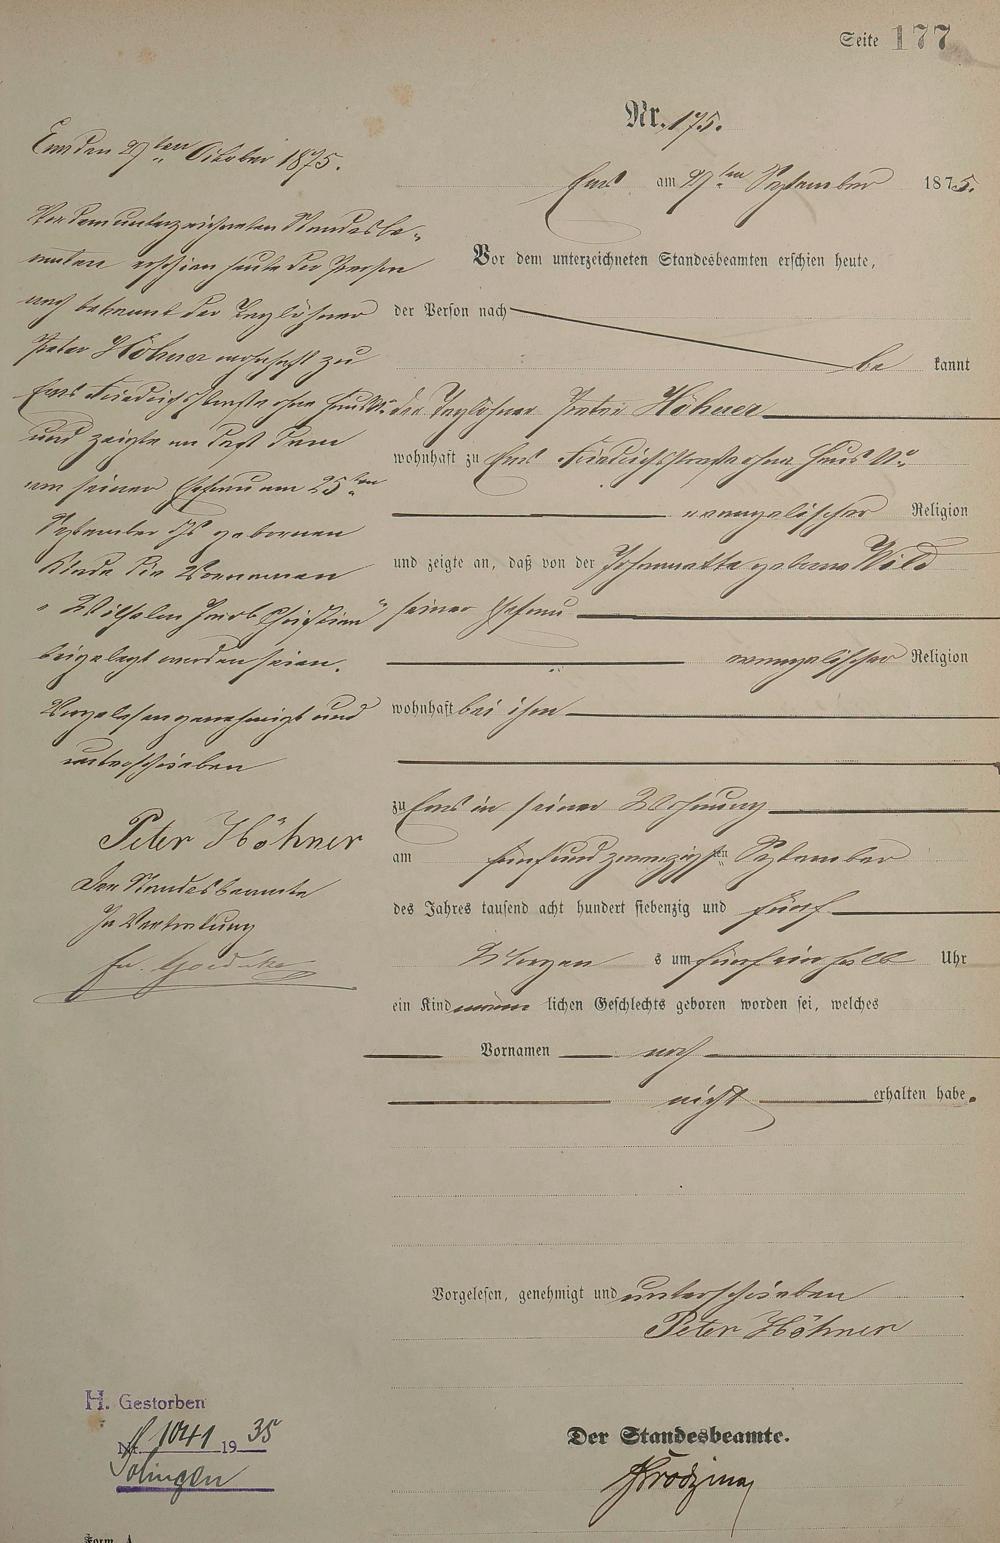 Seite 177
Nr. 175.
Ems am 27ten September 1875.
Vor dem unterzeichneten Standesbeamten erschien heute,
der Person nach
be kannt
der Taglöhner Peter Höhner
wohnhaft zu Ems Friedrichsstraße ohne Haus No.
evangelischer Religion
und zeigte an, daß von der Johannatta geborne Wild
seiner Ehefrau
evangelischer Religion
wohnhaft bei ihm
zu Ems in seiner Wohnung
am fünf und zwanzigsten September
des Jahres tausend acht hundert siebenzig und fünf
Morgen s um fünf ein halb Uhr
ein Kind männ lichen Geschlechts geboren worden sei, welches
Vornamen noch
nicht erhalten habe.
Vorgelesen, genehmigt und unterschrieben
Peter Höhner
Der Standesbeamte.
Ems den 27ten Oktober 1875.
Vor dem unterzeichneten Standesbe-
amten erschien heute der Person
nach bekannt der Taglöhner
Peter Höhner wohnhaft zu
Ems Friedrichsstraße ohne Haus No.
und zeigte an daß dem
von seiner Ehefrau am 25ten
September d Js gebornen
Kinde die Vornamen
"Wilhelm Jacob Christian"
beigelegt worden seien.
Vorgelesen genehmigt und
unterschrieben
Peter Höhner
Der Standesbeamte
In Vertretung
H. Gestorben
Nr. 1041 1935
Solingen
Form. A.